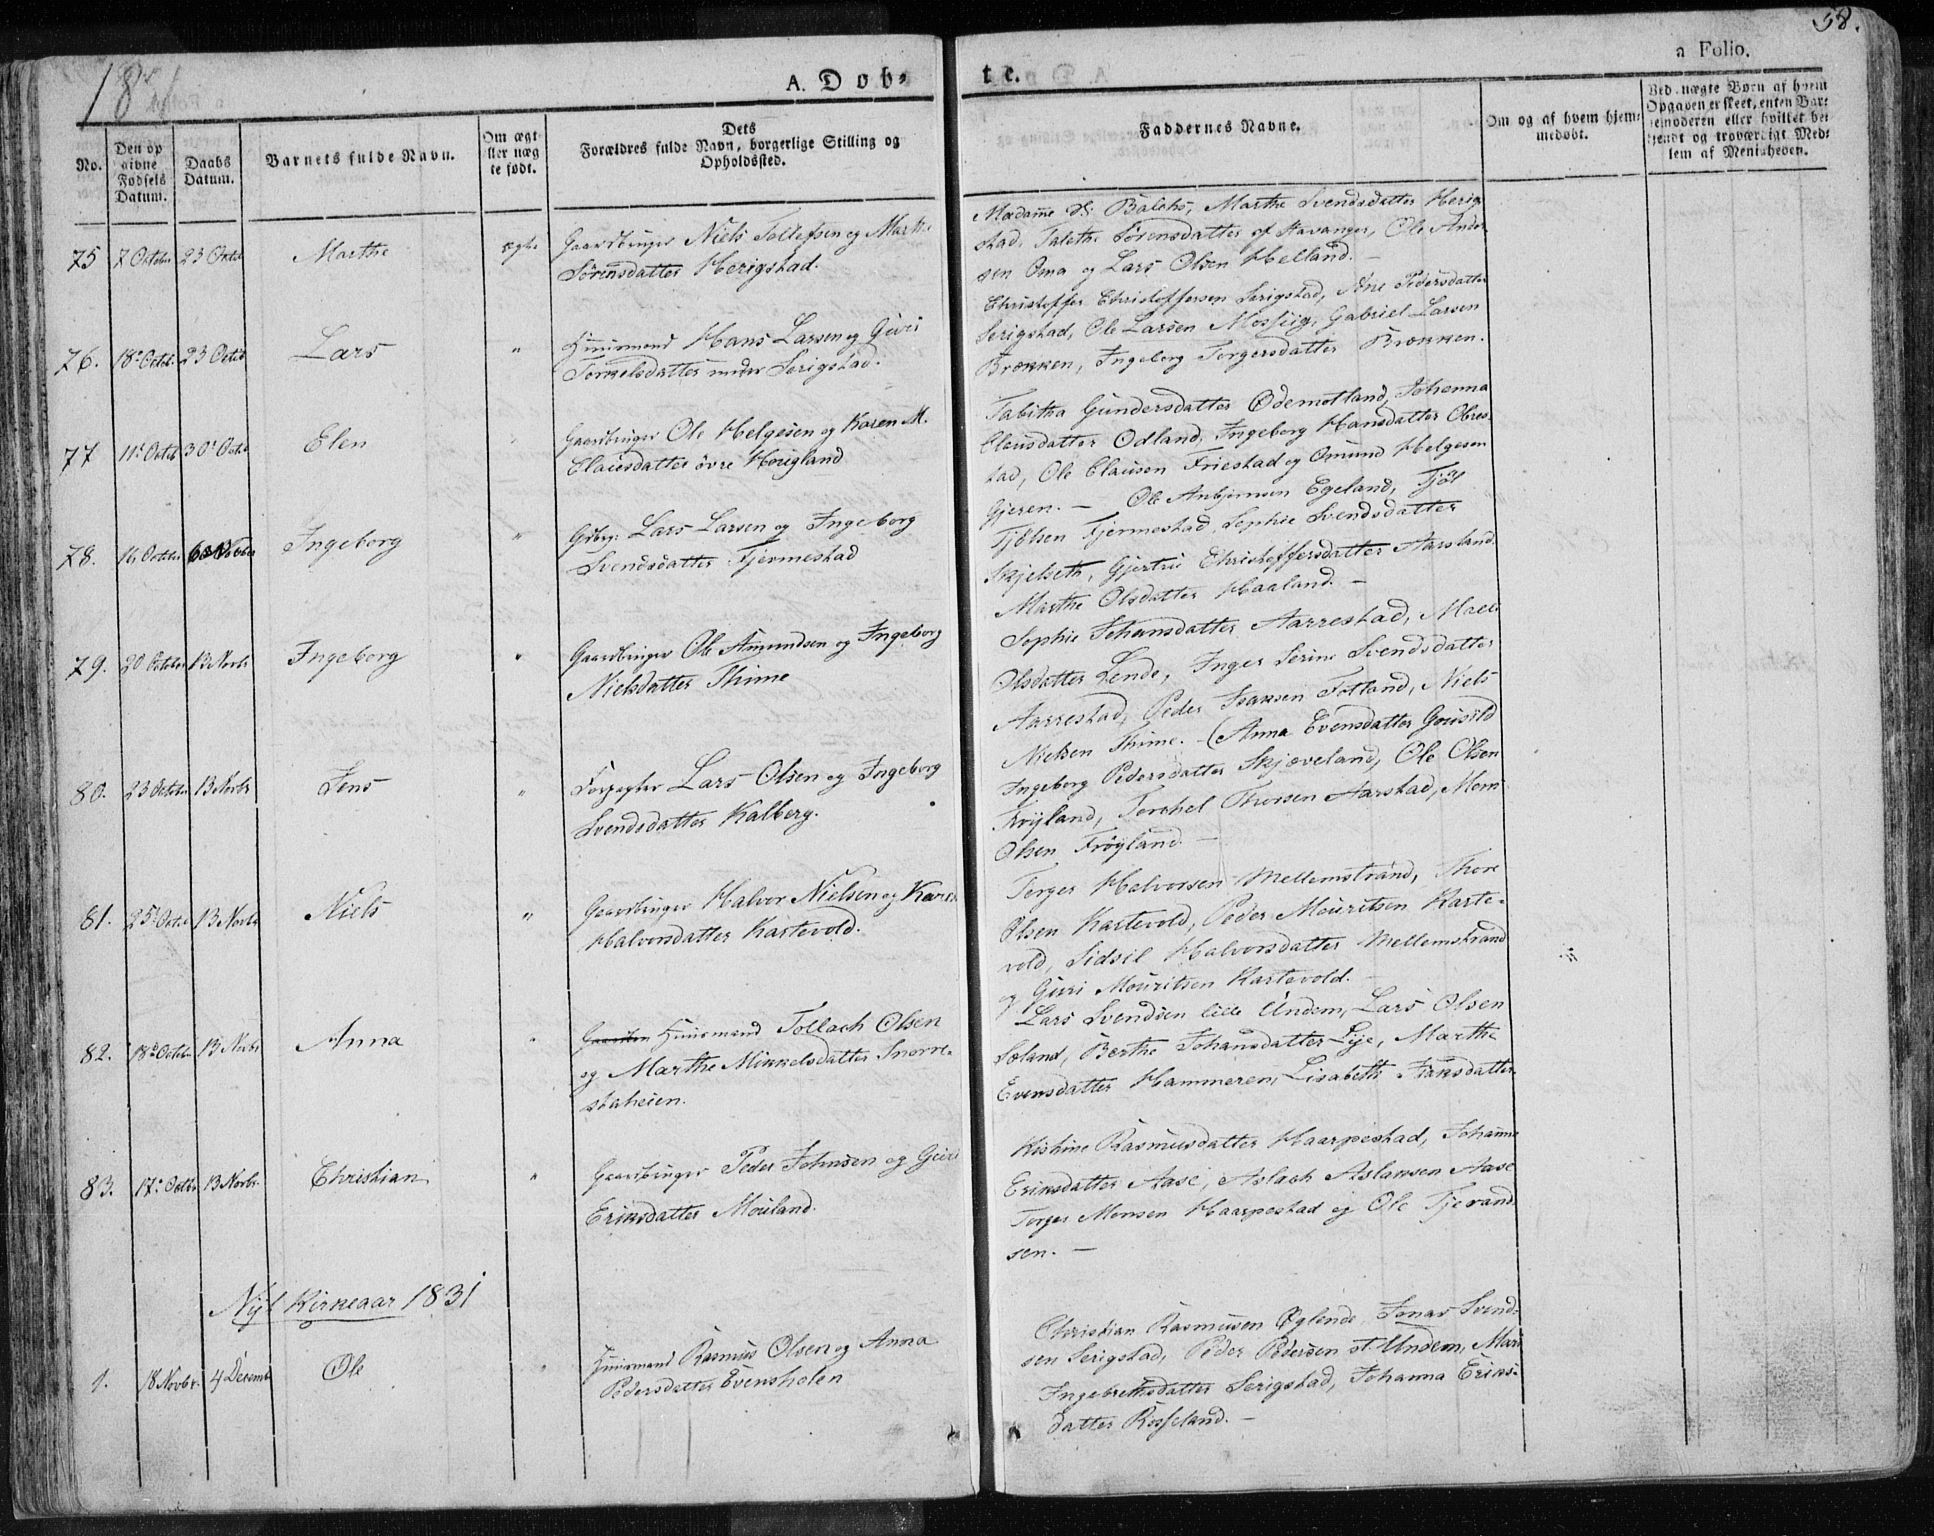 58.
1831
A. Døb-
te.
a Folio.
No.
Den op
givne
Fødsels
Datum.
Daabs
Datum.
Barnets fulde Navn.
Om ægt
eller uæg
te født.
Dets
Forældres fulde Navn, borgerlige Stilling og
Opholdssted.
Faddernes Navne.
Om og af hvem hjem-
medøbt.
Ved uægte Børn af hvem
Opgaven er skeet, enten Bar-
nemoderen eller hvilket be-
kjendt og troværdigt Med-
lem af Menigheden.
75 7 October 23 Octob Marthe ægte Gaardbruger Niels Tollefsen og Marthe
Sørensdatter Herigstad.
Madame Balcho, Marthe Svendsdatter Herig
stad, Talethe Sørensdatter af Stavanger, Ole Ander
sen Oma og Lars Olsen Helland. –
76. 18. Octob. 23 Octob Lars " Huusmand Hans Larsen og Guri
Torkelsdatter under Serigstad.
Christoffer Christoffersen Serigstad, Ane Pedersdatter
Serigstad, Ole Larsen Mossiig, Gabriel Larsen
Brekken, Ingeborg Torgersdatter Brekken.
77 11. Octob 30. Octob Elen " Gaardbruger Ole Helgesen og Karen M.
Clausdatter øvre Hougland
Tabitha Gundersdatter Ødemotland, Johanna
Clausdatter Odland, Ingeborg Hansdatter Obres-
tad, Ole Clausen Friestad og Omund Helgesen
Gjeren. –
78. 16 Octobr 6 Novber Ingeborg " Gdbr: Lars Larsen og Ingeborg
Svendsdatter Fjermestad
Ole Anbjørnsen Egeland, Tjøl
Tjølsen Fjermestad, Sophie Svendsdatter
Skjelseth, Gjertru Christoffersdatter Aarsland
Marthe Olsdatter Haaland. –
79. 20 October 13 Novbr Ingeborg " Gaardbruger Ole Amundsen og Ingeborg
Nielsdatter Thime
Sophie Johansdatter Aarrestad, Malle
Olsdatter Lende, Inger Serine Svendsdatter
Aarrestad, Peder Isaksen Fotland, Niels
Nielsen Thime. –
80. 23 October 13 Novbr Jens " Forpagter Lars Olsen og Ingeborg
Svendsdatter Kalberg.
(Anna Evensdatter Grusild
Ingeborg Pedersdatter Skjæveland, Ole Olsen
Frøyland, Torchel Thorsen Aarstad, Mons
Olsen Frøyland –
81. 25. Octob 13 Novbr Niels " Gaardbruger Halvor Nielsen og Karen
Halvorsdatter Kartevold.
Torger Halvorsen Mellemstrand, Thore
Olsen Kartevold, Peder Mouritsen Karte-
vold, Sidsil Halvorsdatter Mellemstrand
og Guri Mouritsen Kartevold. –
82. 18. Octobr 13 Novbr Anna " Huusmand Tollach Olsen
og Marthe Mikkelsdatter Snorre-
staheien.
Lars Svendsen lille Undem, Lars Olsen
Soland, Berthe Johansdatter Lye, Marthe
Evensdatter Hammeren, Lisabeth Isaksdatter
83. 17. Octbr 13 Novbr. Christian " Gaardbruger Peder Johnsen og Guri
Eriksdatter Mouland.
Kistine Rasmusdatter Haarpestad, Johanne
Eriksdatter Aase, Aslach Aslaksen Aase
Torger Monsen Haarpestad og Ole Tjerand
sen. –
Nyt Kirkeaar 1831
1. 18 Novbr. 4 Decemb Ole " Huusmand Rasmus Olsen og Anna
Pedersdatter Evensholen
Christian Rasmussen Øglende, Jonas Svend-
sen Serigstad, Peder Pedersen st. Undem, Mari
Ingebretsdatter Serigstad, Johanna Eriks-
datter Rosseland. –